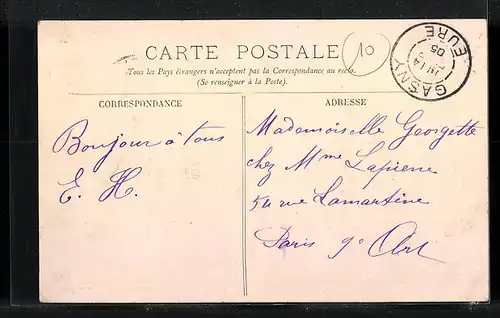 CARTE POSTALE
10
Tous les Pays étrangers n'acceptent pas la Correspondance au recto.
(Se renseigner à la Poste).
GASNY
EURE
05
CORRESPONDANCE
ADRESSE
Bonjour à tous
E. H.
Mademoiselle Georgette
chez Mme Lapierre
54 rue Lamartine
Paris 9e Art